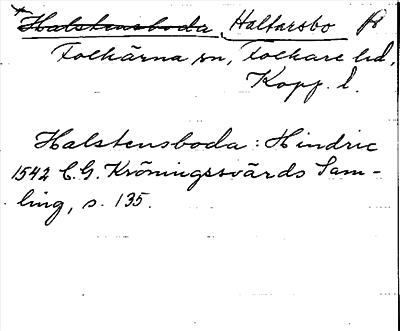 Halstensboda, Haltarsbo
Folkärna sn, Folkare hd,
Kopp. l.
Halstensboda : Hindric
1542 C. G. Kröningssvärds Sam-
ling, s. 135.